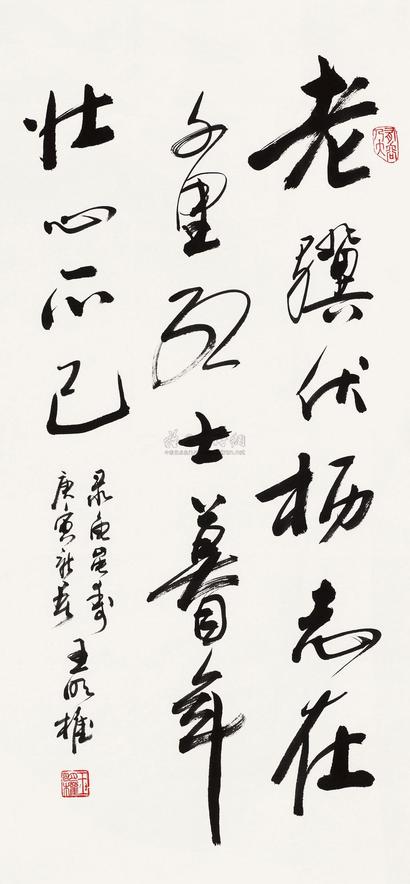 老骥伏枥志在
千里烈士暮年
壮心不已
录曹孟德
庚寅新春 王明権